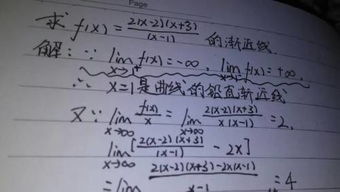 Page
求 f(x) = 2(x-2)(x+3)/(x-1) 的渐近线
解: ∵ lim x→1⁺ f(x) = -∞, lim f(x) = +∞,
∴ x=1是曲线的铅直渐近线
又∵ lim x→∞ f(x)/x = lim x→∞ 2(x-2)(x+3)/x(x-1) = 2,
lim x→∞ [2(x-2)(x+3)/(x-1) - 2x]
= lim 2(x-2)(x+3)-2x(x-1)/x-1 = 4